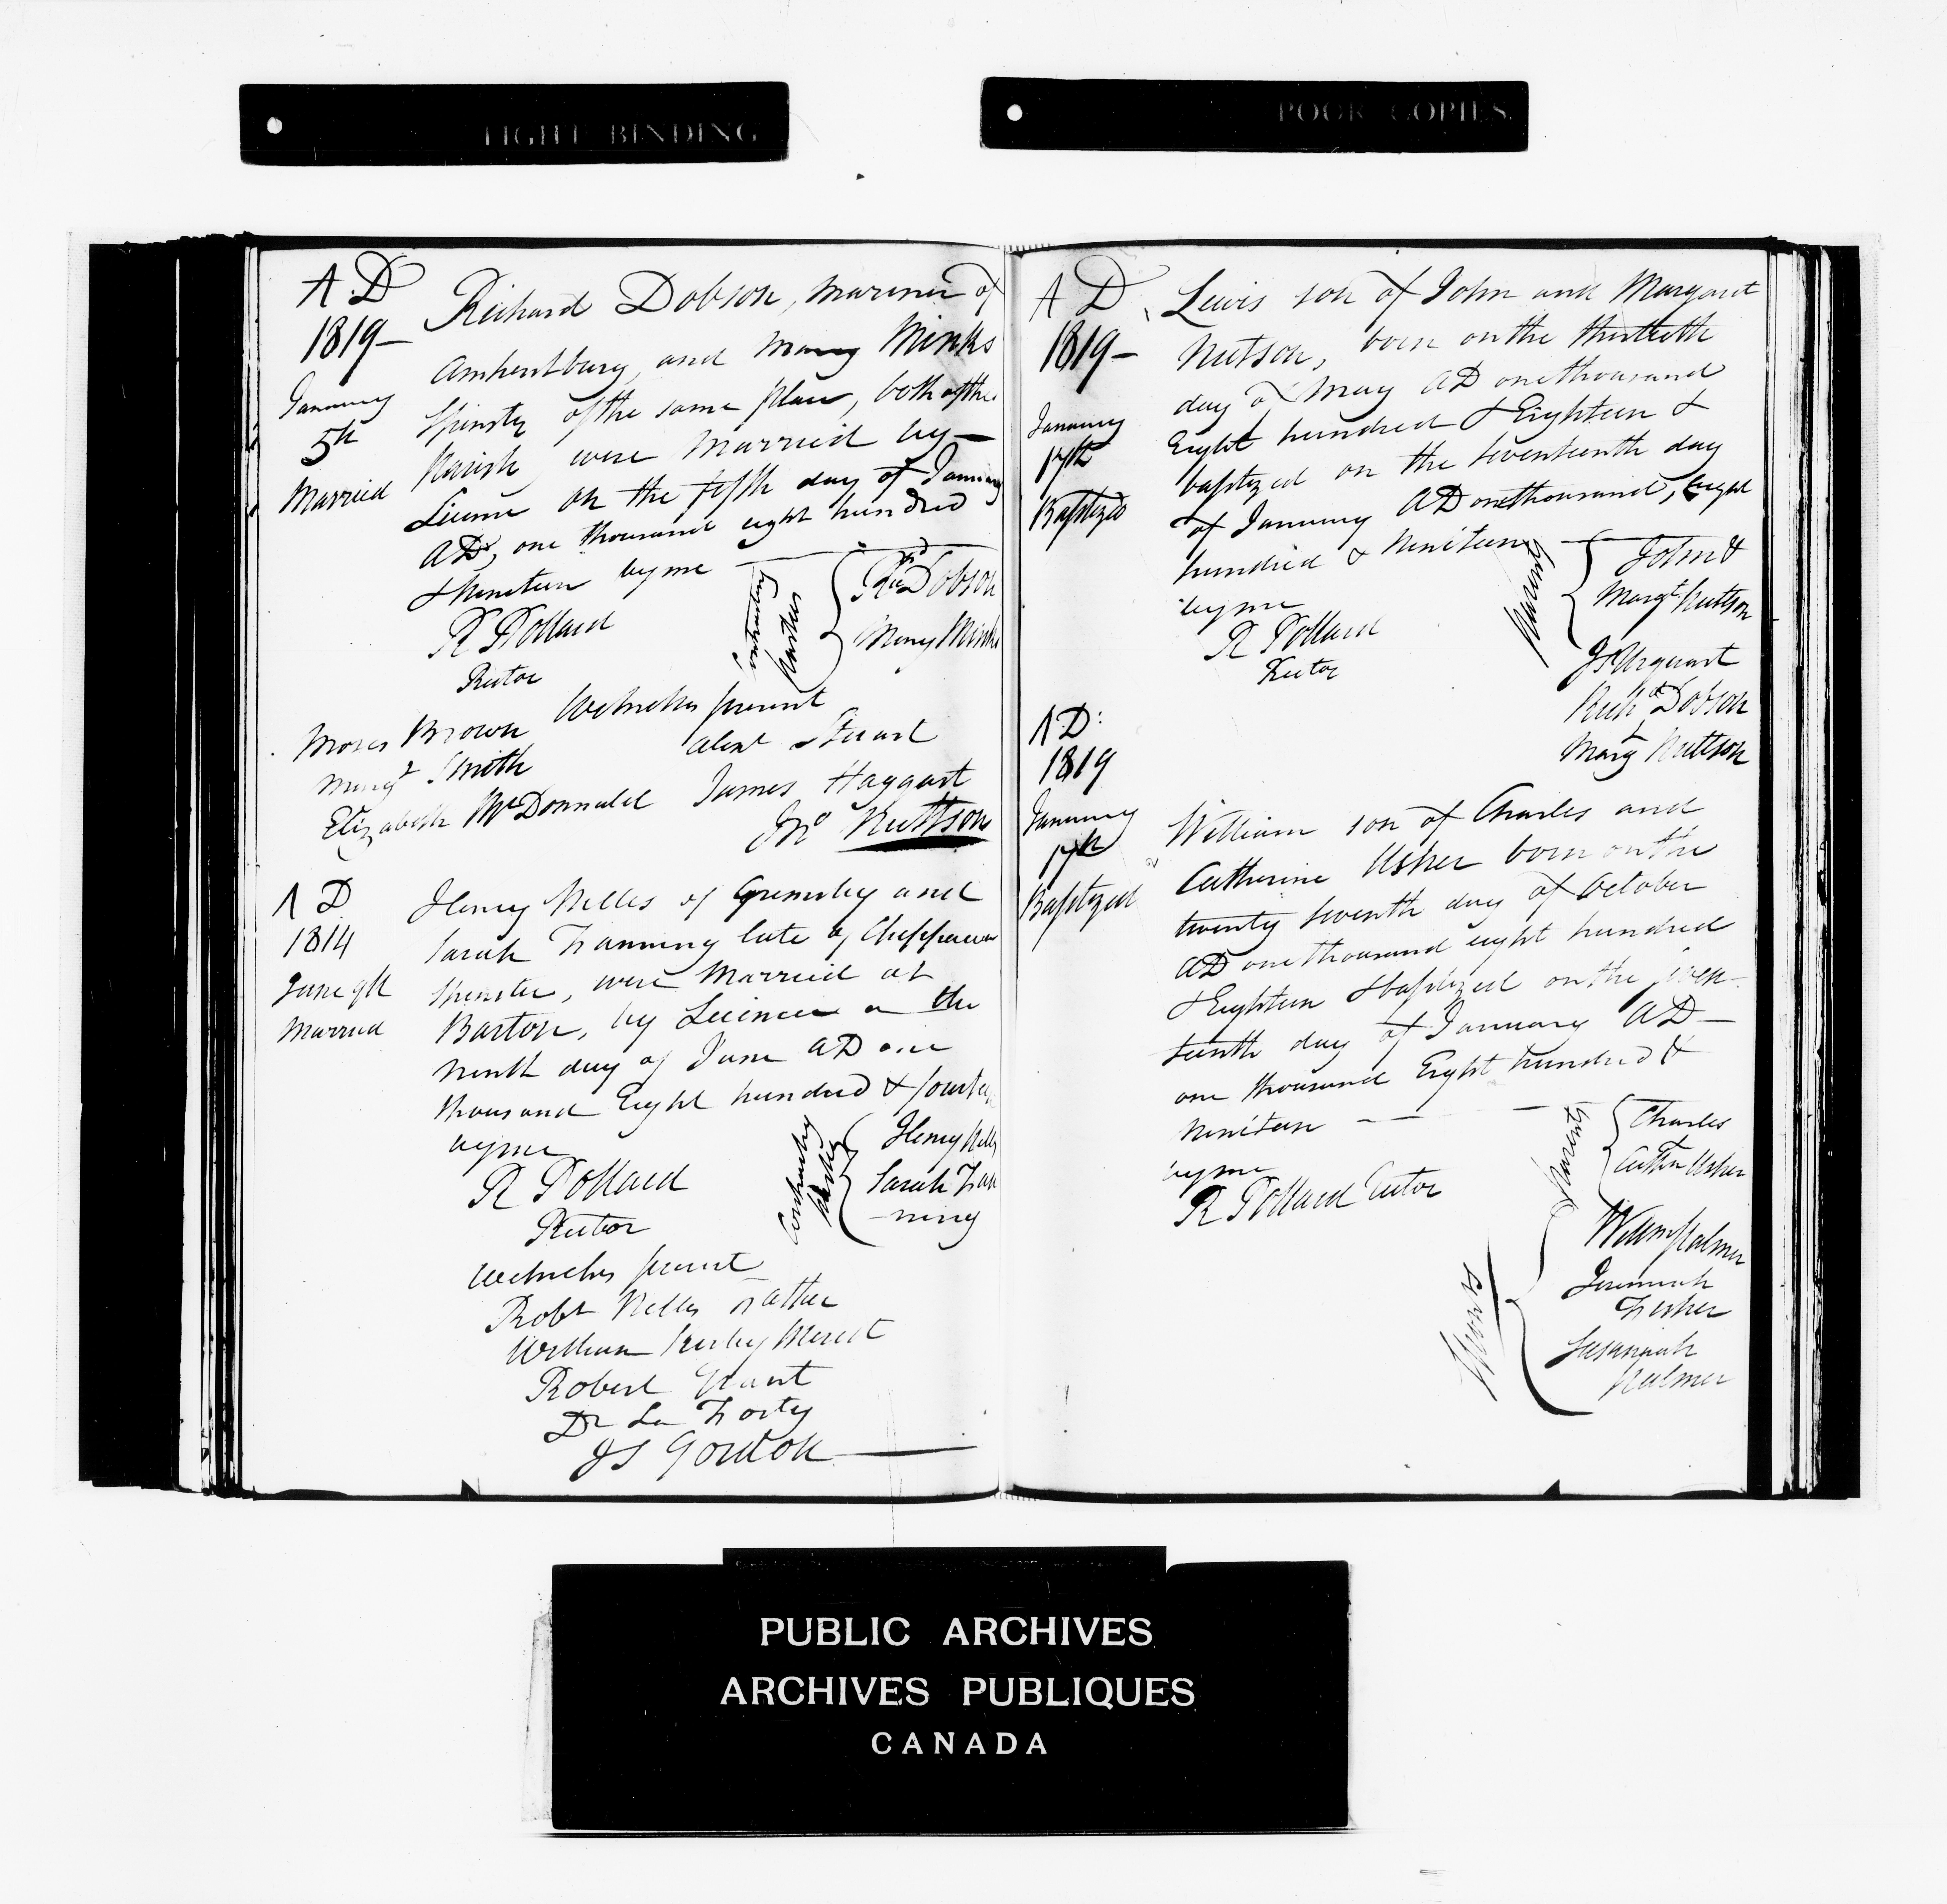 TIGHT BINDING
POOR COPIES.
A.D
1819-
January
5th
Married
Richard Dobson, mariner of
Amherstburg, and Mary Minks
Spinster of the same place, both of this
Parish were Married by —
Licence on the fifth day of January
AD, one thousand eight hundred
& Nineteen by me —
R Pollard
Rector
Contracting
parties
Richd Dobson
Mary Minks
Witnesses present
Moses Brown
Alexr Stuart
Margt Smith
James Haggart
Elizabeth McDonnald
Jno Nuttson
A D
1814
June 9th
Married
Henry Nelles of Grimsby and
Sarah Fanning late of Chippawa
Spinster, were Married at
Barton, by Licence on the
ninth day of June AD one
thousand Eight hundred & fourteen
by me
R Pollard
Rector
Contracting
parties
Henry Nelles
Sarah Fan
-ning
Witnesses present
Robt Nelles Father
William Merrit
Robert Grant
Dr La Forty
JS Gordon
A D
1819-
January
17th
Baptized
Lewis son of John and Margaret
Nutson, born on the thirtieth
day of May AD one thousand
Eight hundred & Eighteen &
baptized on the seventeenth day
of January AD one thousand, Eight
hundred & Nineteen —
by me
R Pollard
Rector
Parents
John &
Margt Nuttson
Js Urquart
Richd Dobson
Margt Nuttson
A D:
1819
January
17th
Baptized
William son of Charles and
Catherine Usher born on the
twenty seventh day of October
AD one thousand eight hundred
& Eighteen & baptized on the seven-
teenth day of January AD —
one thousand Eight hundred &
Nineteen —
by me
R Pollard Rector
Parents
Charles
Cathn Usher
Sponsrs
Willm Palmer
Jeremiah
Fisher
Susannah
Palmer
PUBLIC ARCHIVES
ARCHIVES PUBLIQUES
CANADA